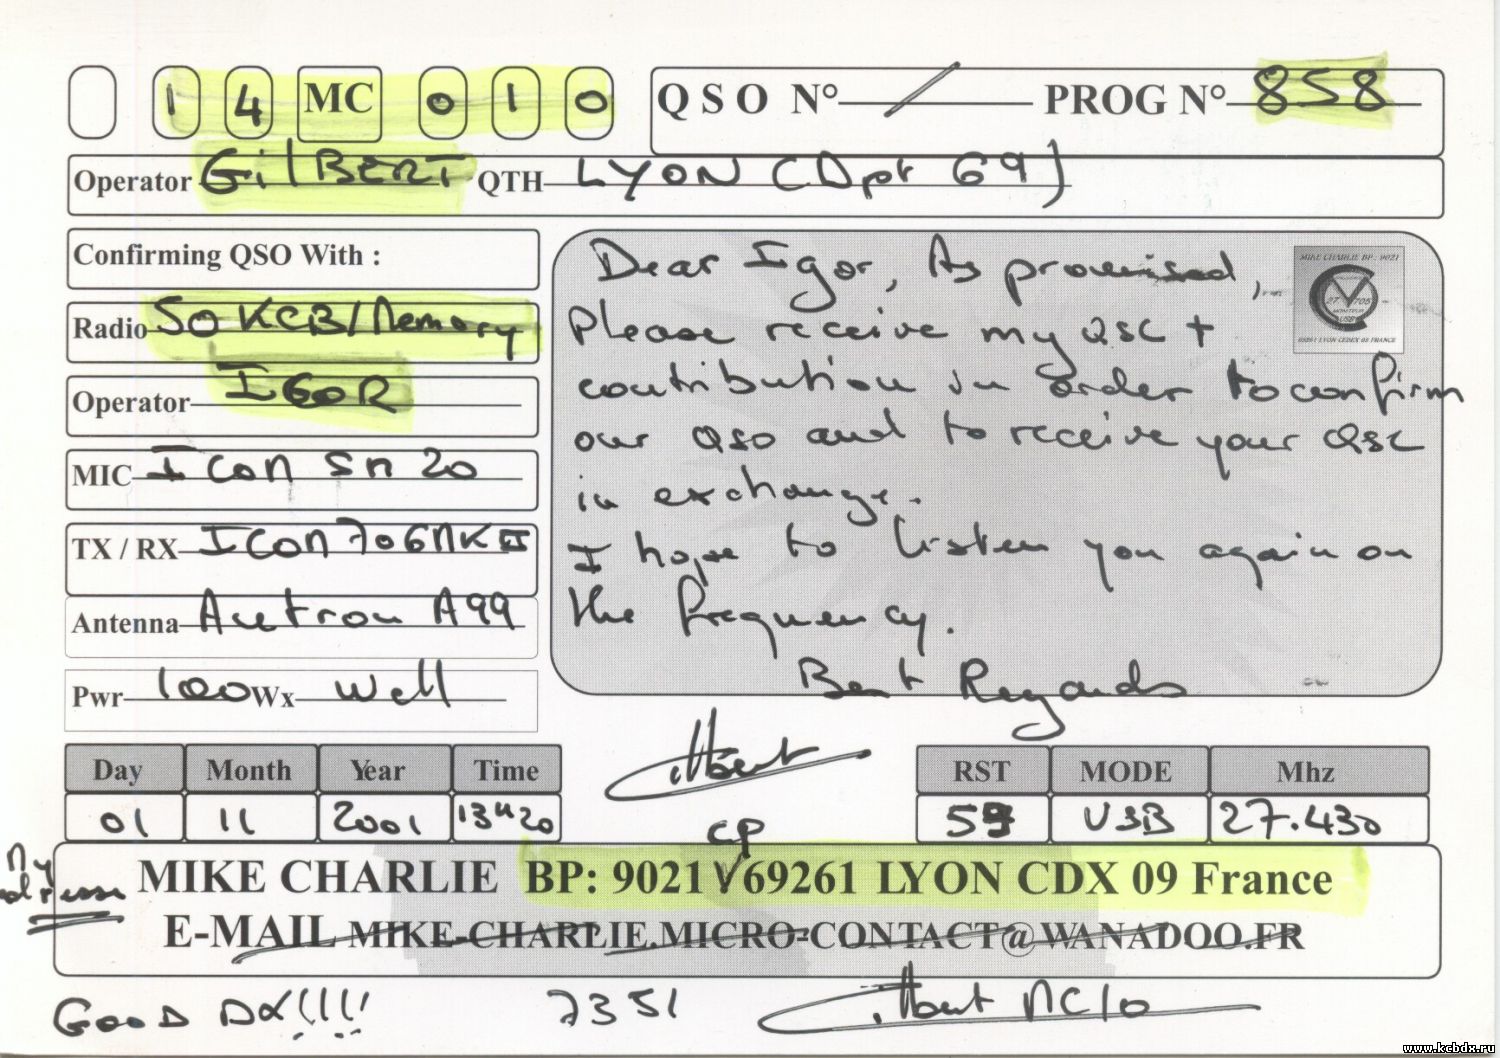 1 4 MC 0 1 0 QSO N° / PROG N° 858
Operator GilBERT QTH LYON (Dpt 69)
Confirming QSO With :
Radio 50 KCB/Memory
Operator IGOR
MIC Icon Sm 20
TX / RX Icon 706MKII
Antenna Antron A99
Pwr 100 Wx well
Dear Igor, As promised,
Please receive my QSL +
contribution in order to confirm
our QSO and to receive your QSL
in exchange.
I hope to listen you again on
the frequency.
Best Regards
MIKE CHARLIE BP: 9021
27 705
MONITEUR
USB
69261 LYON CEDEX 09 FRANCE
Day Month Year Time
01 11 2001 13H20
RST MODE Mhz
59 USB 27.430
CP
My
adresse
MIKE CHARLIE BP: 9021 69261 LYON CDX 09 France
E-MAIL MIKE-CHARLIE.MICRO-CONTACT@WANADOO.FR
GOOD DX!!!! 73 51 MC10
www.kcbdx.ru